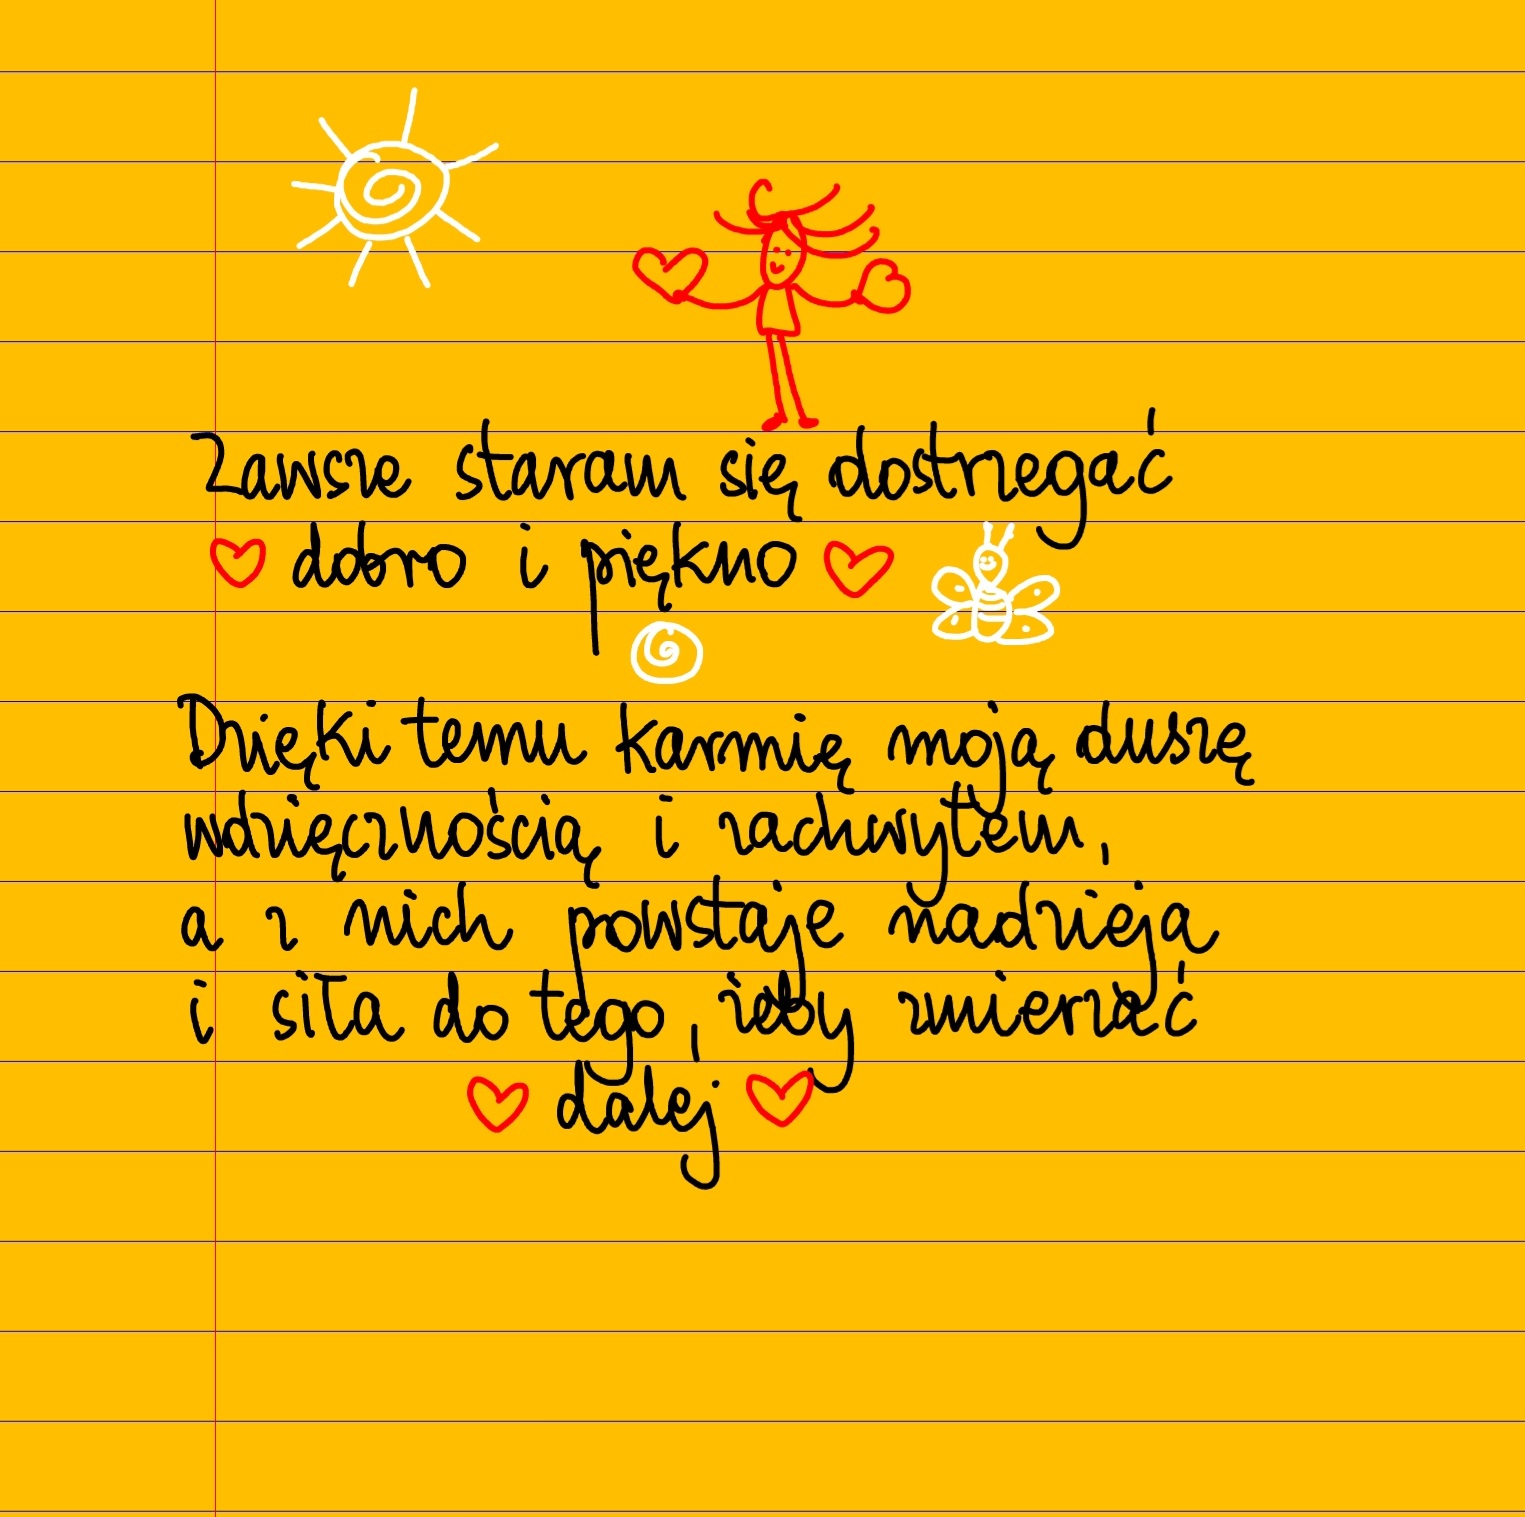 Zawsze staram się dostrzegać
dobro i piękno
Dzięki temu karmię moją duszę
wdzięcznością i zachwytem,
a z nich powstaje nadzieja
i siła do tego, żeby zmierzać
dalej